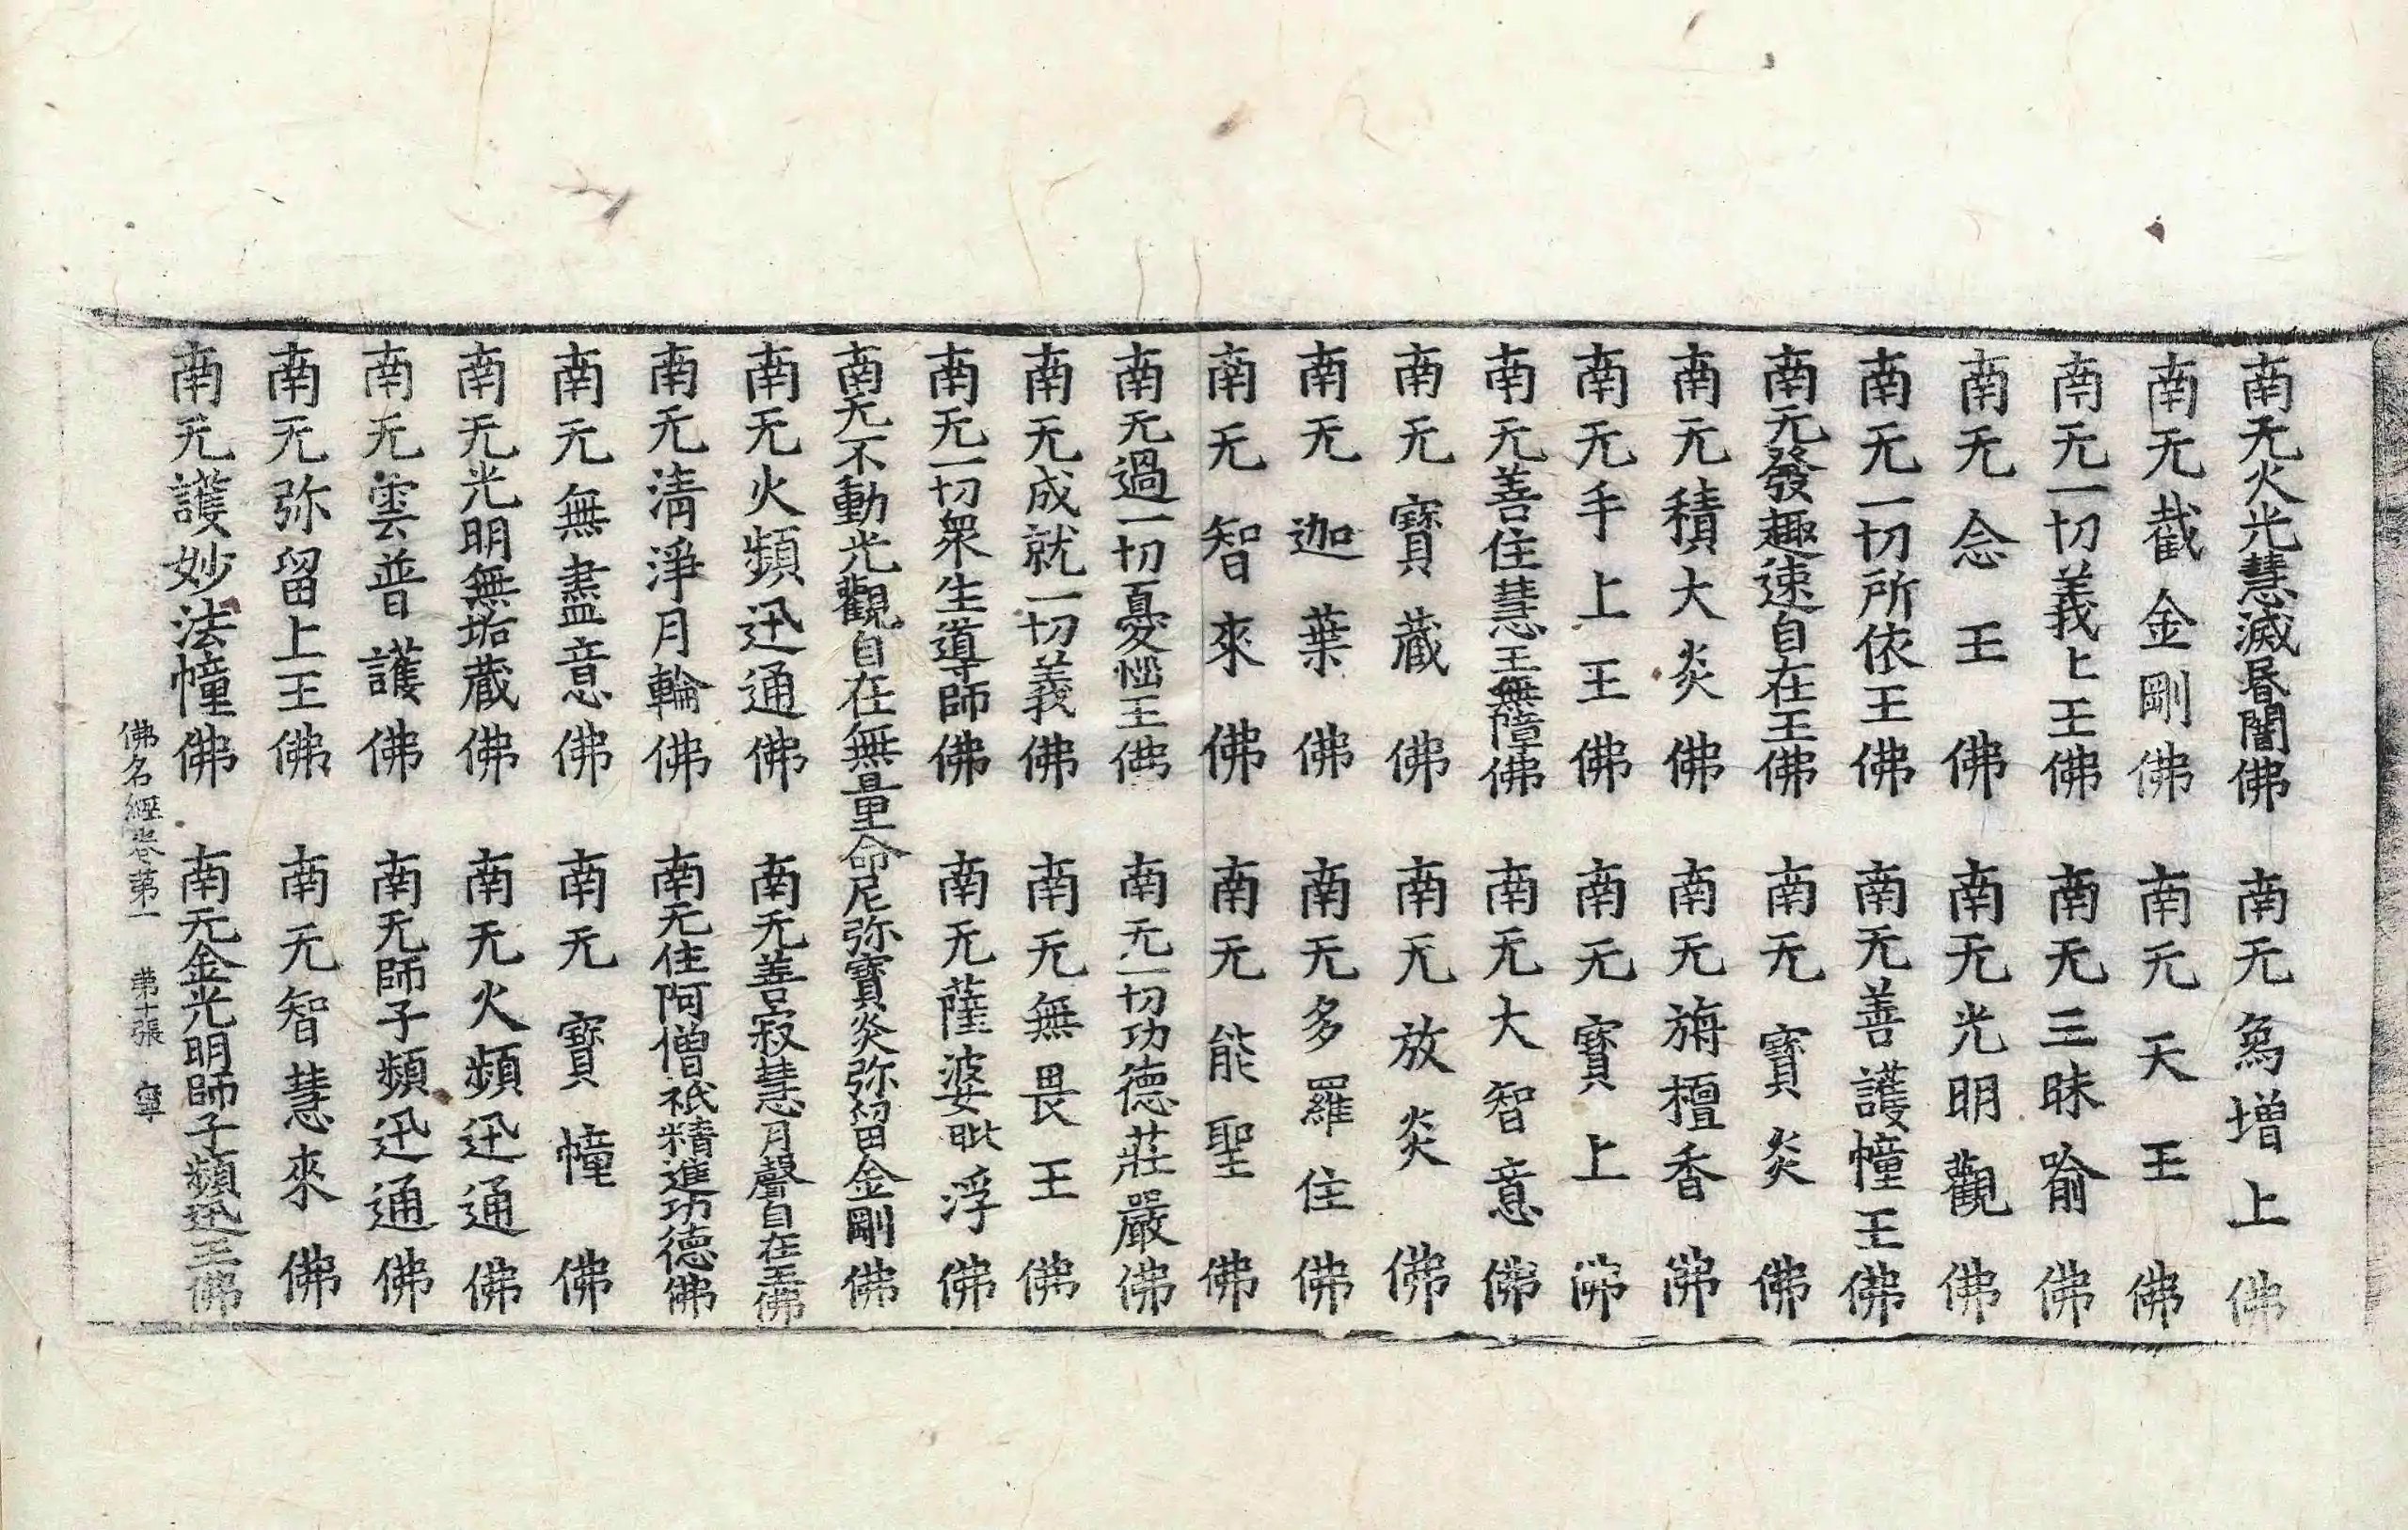 南无火光慧滅昏闇佛 南无為增上佛
南无截金剛佛 南无天王佛
南无一切義上王佛 南无三昧喻佛
南无念王佛 南无光明觀佛
南无一切所依王佛 南无善護幢王佛
南无發趣速自在王佛 南无寶炎佛
南无積大炎佛 南无旃檀香佛
南无手上王佛 南无寶上佛
南无善住慧王無障佛 南无大智意佛
南无寶藏佛 南无放炎佛
南无迦葉佛 南无多羅住佛
南无智來佛 南无能聖佛
南无過一切憂惱王佛 南无一切功德莊嚴佛
南无成就一切義佛 南无無畏王佛
南无一切衆生導師佛 南无薩婆毗浮佛
南无不動光觀自在無量命尼弥寶炎弥留金剛佛
南无火頻迅通佛 南无善寂慧月聲自在王佛
南无清淨月輪佛 南无住阿僧祇精進功德佛
南无無盡意佛 南无寶幢佛
南无光明無垢藏佛 南无火頻迅通佛
南无雲普護佛 南无師子頻迅通佛
南无弥留上王佛 南无智慧來佛
南无護妙法幢佛 南无金光明師子頻迅王佛
佛名經卷第一 第十張 寧